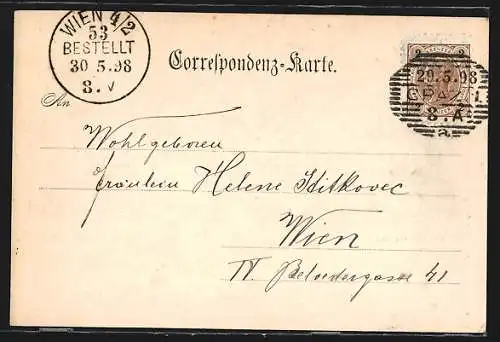 WIEN 4/2
53
BESTELLT
30 5.98
8. V
Correspondenz-Karte.
29.5.98
GRAZ 1
8.A
a
An
Wohlgeboren
Fräulein Helene Sitkovec
Wien
IV. Belvedergasse 41